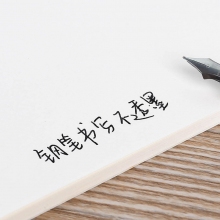 钢笔书写不透墨